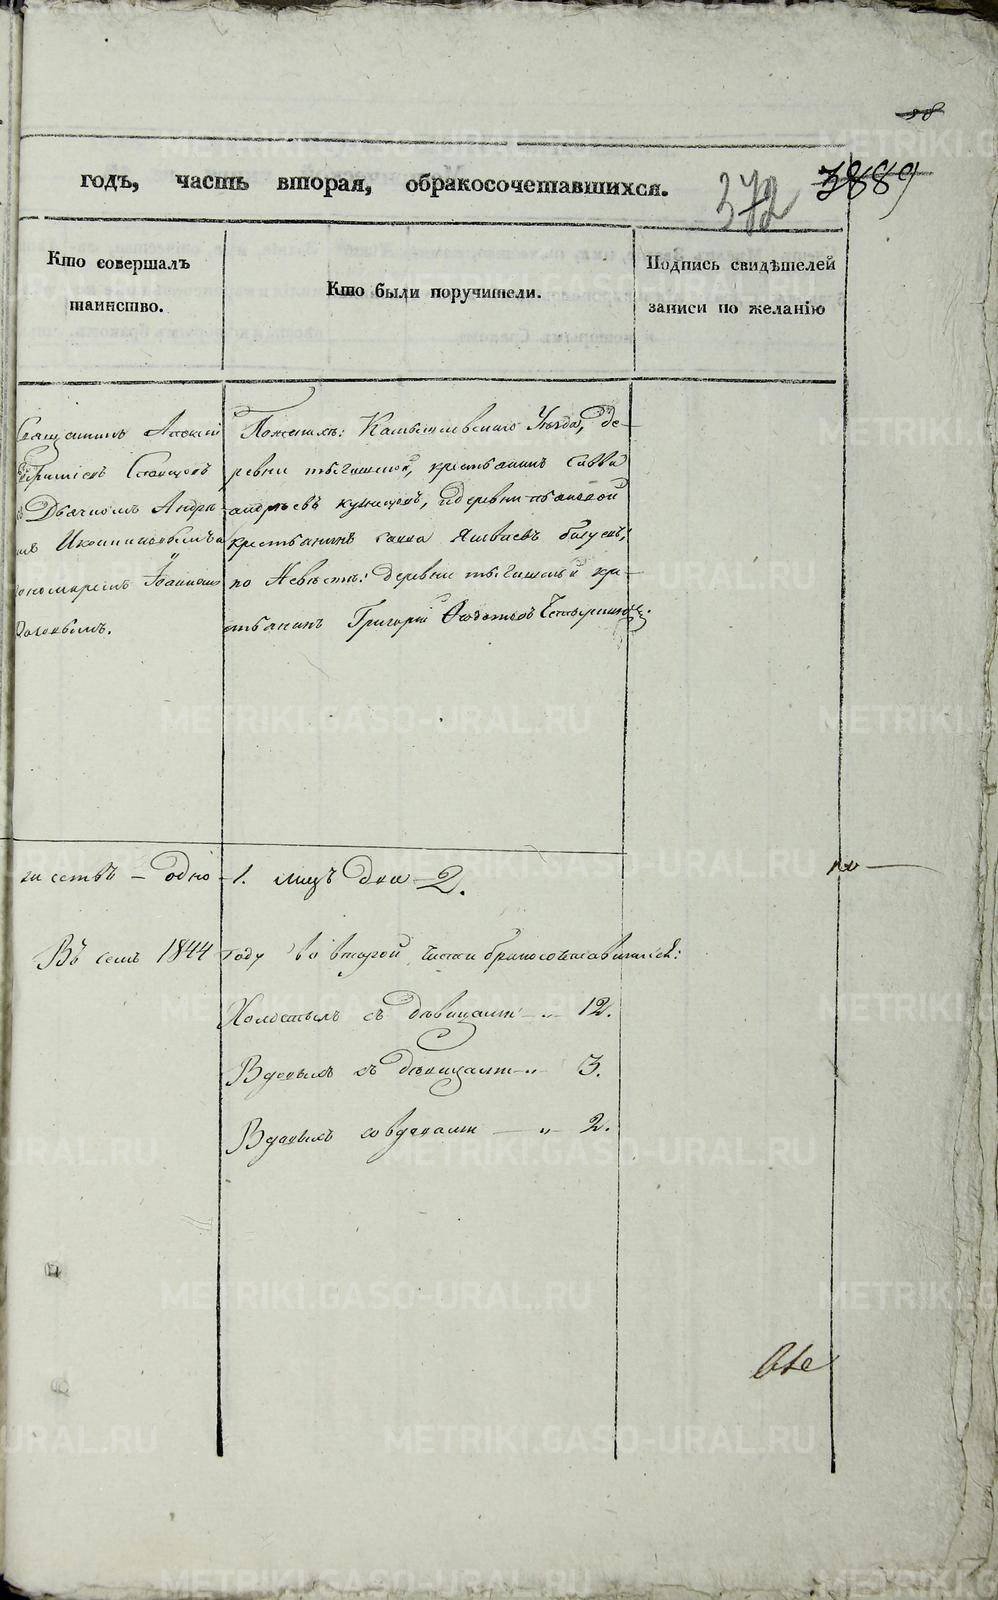 58
годъ, часть вторая, обракосочетавшихся.
372 3889
Кто совершалъ
таинство.
Кто были поручители.
Подпись свидѣтелей
записи по желанію
Священникъ Алексій
Стефановъ
Дьячкомъ Андре
Иконниковымъ
пономаремъ Іоанномъ
По женихѣ: Камышловскаго Уѣзда, де-
ревни крестьянинъ Савва
андреевъ кузнецовъ, и деревни
крестьянинъ савва Яковлевъ
по Невѣстѣ: деревни кре-
стьянинъ Григорій Ѳедотовъ
сетвъ – одно – 1. лицъ два – 2.
но —
Въ семъ 1844 году во второй части бракосочетавшихся:
Холостыхъ съ дѣвицами – „ – 12.
Вдовыхъ съ дѣвицами – „ – 3.
Вдовыхъ со вдовами — „ – 2.
METRIKI.GASO-URAL.RU